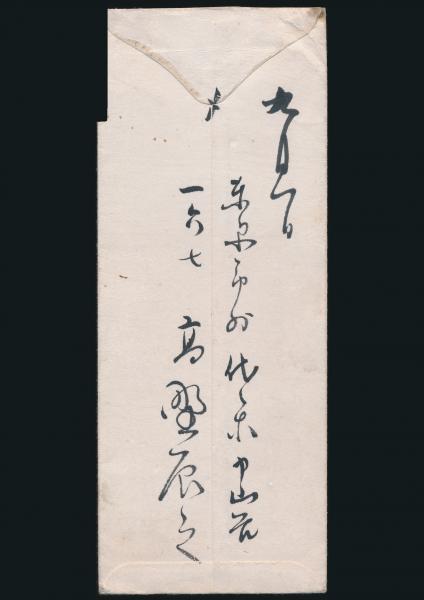 九月一日
東京市外代々木山谷
一六七 高野辰之